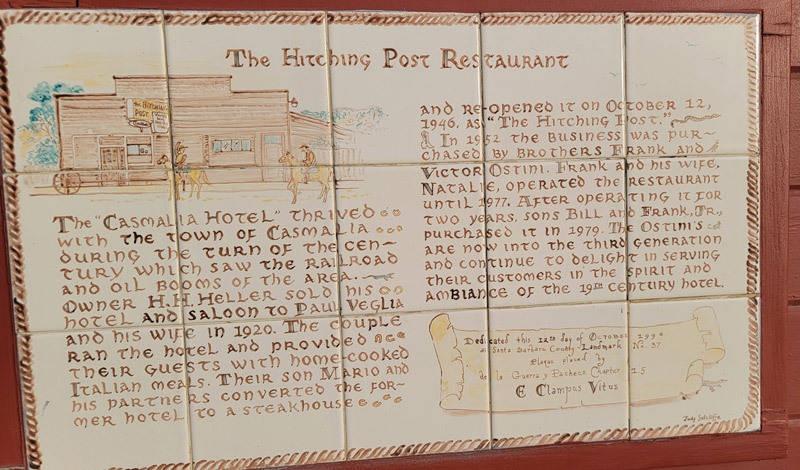 The Hitching Post Restaurant
The Hitching Post
The "Casmalia Hotel" thrived
with the town of Casmalia
during the turn of the cen-
tury which saw the railroad
and oil booms of the area.
Owner H.H. Heller sold his
hotel and saloon to Paul Veglia
and his wife in 1920. The couple
ran the hotel and provided
their guests with home-cooked
Italian meals. Their son Mario and
his partners converted the for-
mer hotel to a steakhouse
and re-opened it on October 12,
1946, as "The Hitching Post."
In 1952 the business was pur-
chased by brothers Frank and
Victor Ostini. Frank and his wife,
Natalie, operated the restaurant
until 1977. After operating it for
two years, sons Bill and Frank, Jr.,
purchased it in 1979. The Ostini's
are now into the third generation
and continue to delight in serving
their customers in the spirit and
ambiance of the 19th century hotel.
Dedicated this 12th day of October 199
as Santa Barbara County Landmark No. 37
Plaque placed by
de la Guerra y Pacheco Chapter 1.5
E Clampus Vitus
Judy Sutcliffe